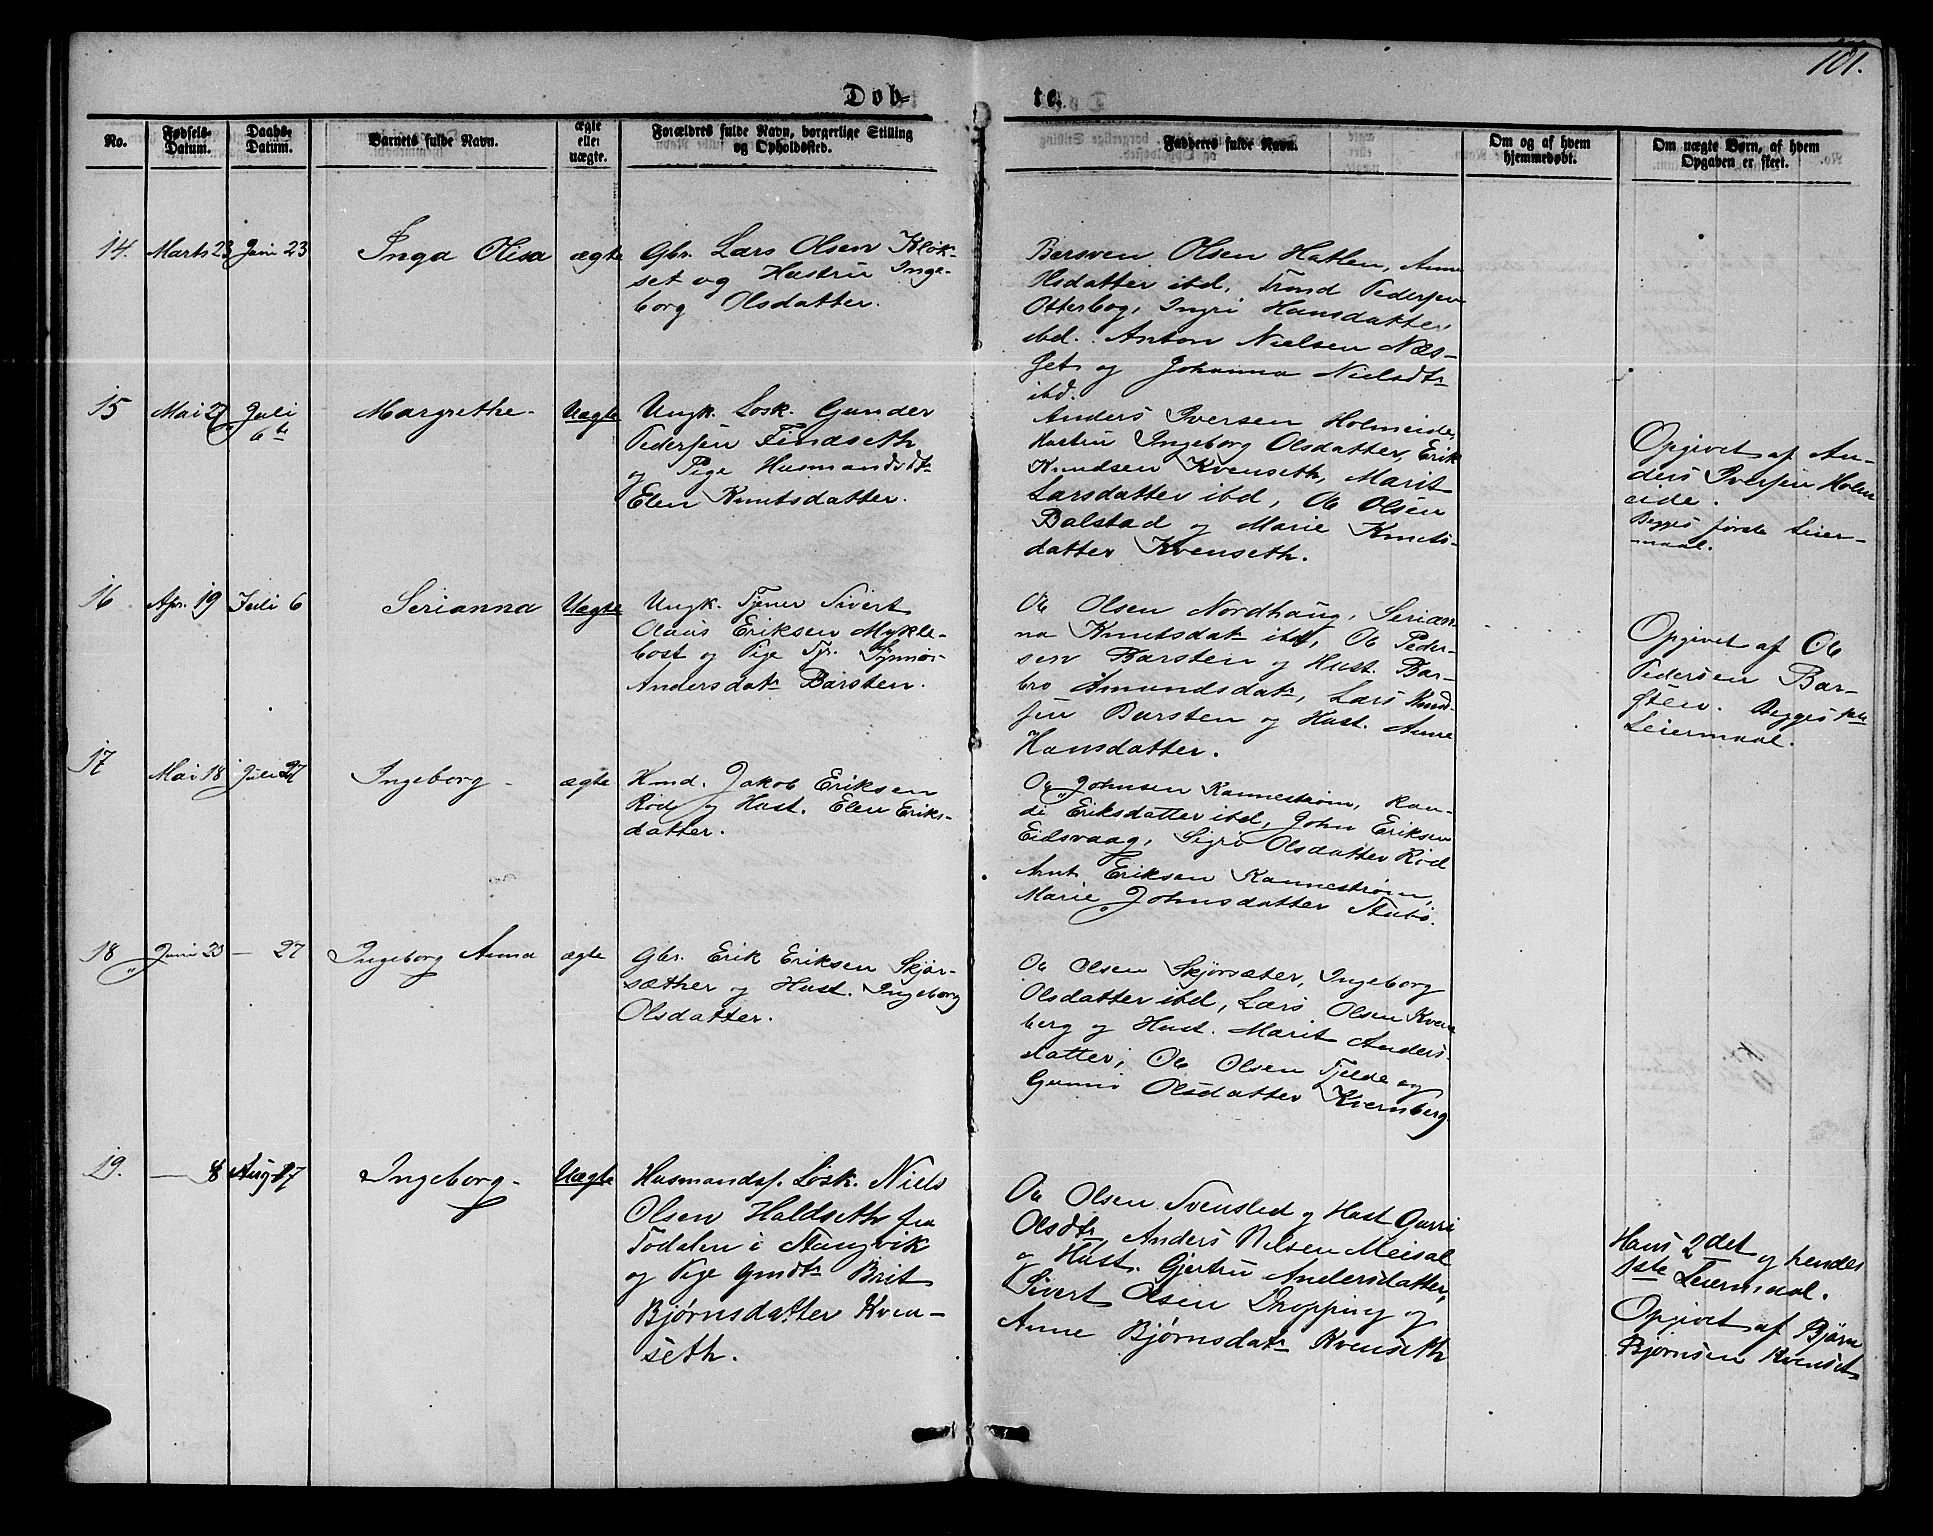 101.
Døb-
te.
No.
Fødsels-
Datum.
Daabs-
Datum.
Barnets fulde Navn.
ægte
eller
uægte.
Forældres fulde Navn, borgerlige Stilling
og Opholdssted.
Fadderes fulde Navn.
Om og af hvem
hjemmedøbt.
Om uægte Børn, af hvem
Opgaven er skeet.
14. Marts 23 Juni 23 Inga Olisa ægte
Gbr. Lars Olsen Kløk-
set og Hustru Inge-
borg Olsdatter.
Bersven Olsen Hatlen, Anne
Olsdatter ibd, Trond Pedersen
Otterbog, Ingri Hansdatter
ibd. Anton Nielsen Næs-
set og Johanna Nielsdtr
ibd.
15 Mai 27 Juli
6te
Margrethe Uægte
Ungk. Losk. Gunder
Pedersen Findseth
og Pige Husmandsdtr
Elen Knutsdatter.
Anders Iversen Holmeide,
Hustru Ingeborg Olsdatter, Erik
Knudsen Kvenseth, Marit
Larsdatter ibd, Ole Olsen
Balstad og Marie Knuts-
datter Kvenseth.
Opgivet af An-
ders Iversen Holm
eide.
Begges første Leier-
maal.
16 Apr. 19 Juli 6 Serianna Uægte
Ungk. Tjener Sivert
Olaus Eriksen Mykle-
bost og Pige Tjr. Synnør
Andersdatr Barsten.
Ole Olsen Nordhaug, Serian-
na Knutsdatr ibd, Ole Peder-
sen Barsten og Hust. Bar-
bro Amundsdatr, Lars Knud-
sen Barsten og Hust. Anne
Hansdatter.
Opgivet af Ole
Pedersen Bar-
sten. Begges 1ste
Leiermaal.
17 Mai 18 Juli 27 Ingeborg - ægte
Hmd. Jakob Eriksen
Rød og Hust. Elen Eriks-
datter.
Ole Johnsen Kannestrøm, Ran-
di Eriksdatter ibd, John Eriksen
Eidsvaag, Sigri Olsdatter Rød
Arnt Eriksen Kannestrøm,
Marie Johnsdatter Stubø.
18 Juni 23 - 27 Ingeborg Anna ægte
Gbr. Erik Eriksen Skjør-
sæther og Hust. Ingeborg
Olsdatter.
Ole Olsen Skjørsæter, Ingeborg
Olsdatter ibd, Lars Olsen Kvern
berg og Hust. Marit Anders-
datter, Ole Olsen Tjelde og
Olsdatter Kvernberg
19. — 8 Aug. 17 Ingeborg - Uægte
Husmands. Losk. Niels
Olsen Haldseth fra
Todalen i Stangvik
og Pige Gmdtr Brit
Bjørnsdatter Kven-
seth.
Ole Olsen Svensled og Hust Gurri
Olsdtr Anders Nilsen Meisal
og Hust. Gjertru Andersdatter,
Sivert Olsen Dropping og
Anne Bjørnsdatr Kvenseth
Hans 2det og hendes
1ste Leiermaal.
Opgivet af Bjørn
Bjørnsen Kvenset